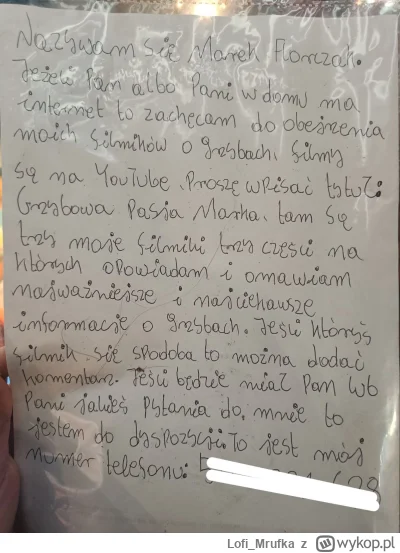 Nazywam się Marek Florczak.
Jeżeli Pan albo Pani w domu ma
internet to zachęcam do obejrzenia
moich filmików o grzybach. filmy
są na YouTube. Proszę wpisać tytuł:
Grzybowa Pasja Marka. tam są
trzy moje filmiki trzy części na
których opowiadam i omawiam
najważniejsze i najciekawsze
informacje o grzybach. Jeśli któryś
filmik się spodoba to można dodać
komentarz. Jeśli będzie miał Pan lub
Pani jakieś pytania do mnie to
jestem do dyspozycji. To jest mój
numer telefonu:
Lofi_Mrufka z wykop.pl